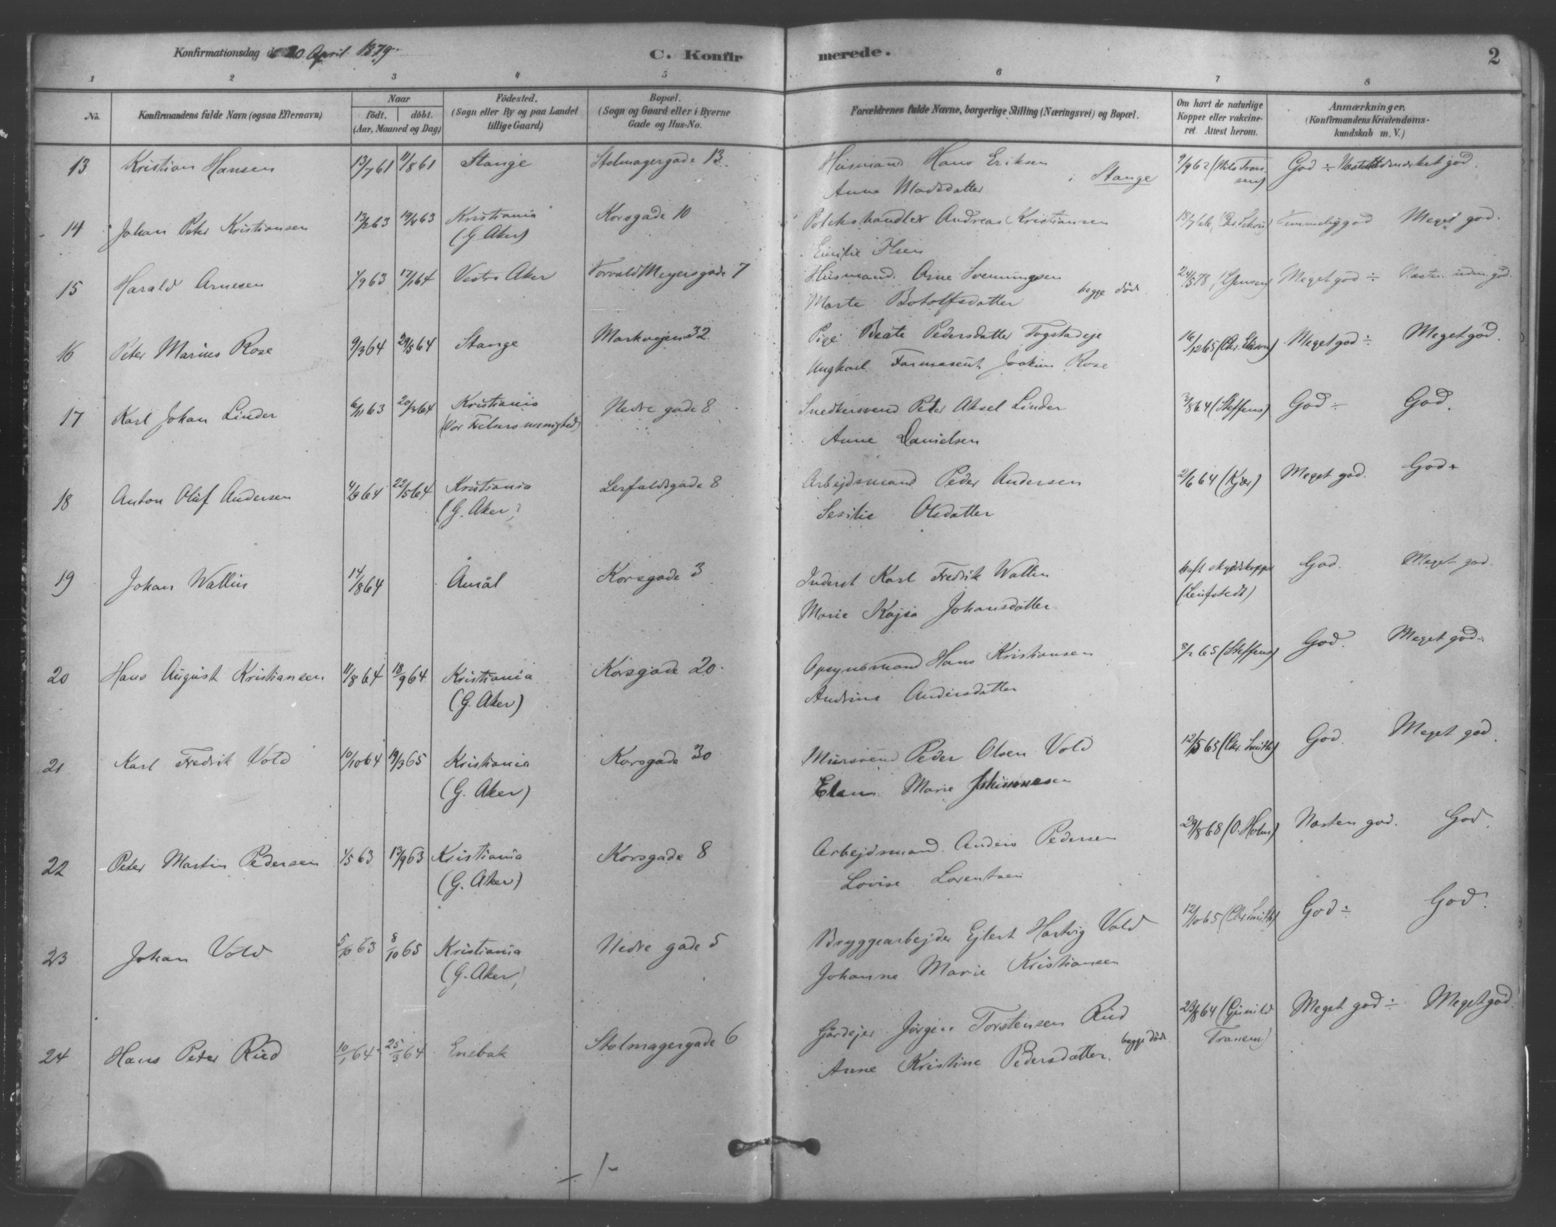 Konfirmationsdag d. 20 April 1879.
C. Konfirmerede.
2
1 2 3 4 5 6 7 8
No.
Konfirmandens fulde Navn (ogsaa Efternavn)
Naar
født. døbt.
(Aar, Maaned og Dag)
Fødested.
(Sogn eller By og paa Landet tillige Gaard)
Bopæl.
(Sogn og Gaard eller i Byerne Gade og Hus-No.
Forældrenes fulde Navne, borgerlige Stilling (Næringsvei) og Bopæl.
Om havt de naturlige Kopper eller vakcineret. Attest herom.
Anmærkninger.
(Konfirmandens Kristendomskundskab m. V.)
13 Kristian Hansen 13/7 61 11/8 61 Stange Stolmagergade 13. Husmand Hans Eriksen
Anne Madsdatter i Stange
God ÷
14 Johan Peter Kristiansen Kristiania
(G. Aker) Korsgade 10 Andreas Kristiansen
Emilie
Temmelig god Meget god.
15 Harald Arnesen 1/9 63 17/1 64 Vestre Aker Torvald Meyersgade 7 Husmand Arne Svenningsen
Marte Botolfsdatter begge døde
Meget god ÷
16 Peter Marius Rose 9/3 64 29/8 64 Stange Markvejen 32 Pige Beate Pedersdatter
Ungkarl Farmaseut Joakim Rose
16/12 65 Meget god ÷ Meget god.
17 Karl Johan Linder 6/11 63 20/3 64 Kristiania
(Vor Frelsers menighed) Nedre gade 8 Snedkersvend Peter Aksel Linder
Anne Danielsen
3/8 64 (Steffens) God ÷ God.
18 Anton Olaf Andersen 4/3 64 22/5 64 Kristiania
(G. Aker) Lerfaldsgade 8 Arbejdsmand Peder Andersen
Sesilie Olsdatter
2/6 64 (Kjær) Meget god. God ÷
19 Johan Wallin 14/8 64 Åmål Korsgade 3 Inderst Karl Fredrik Wallin
Marie Kajsa Johansdatter
God. Meget god.
20 Hans August Kristiansen 11/8 64 18/9 64 Kristiania
(G. Aker) Korsgade 20. Opsynsmand Hans Kristiansen
Andrine Andersdatter
9/2 65 (Steffens) God. Meget god ÷
21 Karl Fredrik Vold 10/10 64 19/3 65 Kristiania
(G. Aker) Korsgade 30 Mursvend Peder Olsen Vold
Marie Johannesen
12/5 65 (Chr. Smith) God. Meget god.
22 Peter Martin Pedersen 1/5 63 13/9 63 Kristiania
(G. Aker) Korsgade 8 Arbejdsmand Anders Pedersen
Lovise Lorentsen
29/8 68 (O. Holm) Næsten god. God.
23 Johan Vold 5/10 63 8/10 65 Kristiania
(G. Aker) Nedre gade 5 Bryggearbejder Ejlert Hartvig Vold
Johanne Marie Kristiansen
12/10 65 (Chr. Smith) God ÷ God.
24 Hans Peter Ried 10/1 64 25/3 64 Enebak Stolmagergade 6 Gårdejer Jørgen Torstensen Ried
Anne Kristine Pedersdatter. begge døde
23/8 64 Meget god ÷ Meget god.